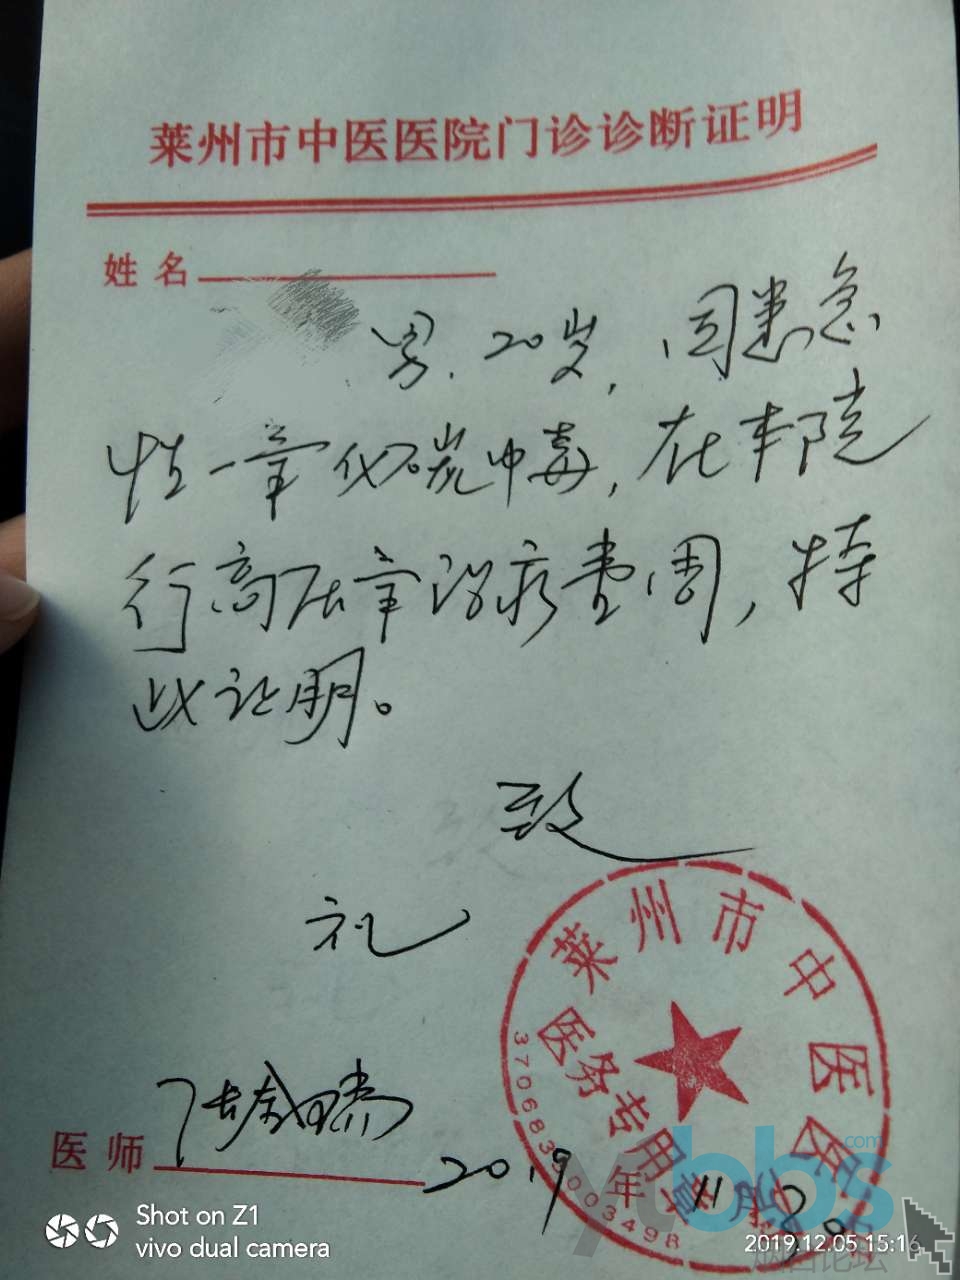 莱州市中医医院门诊诊断证明
姓名
男.20岁,因患急
性一氧化碳中毒,在本院
行高压氧治疗壹周,特
此证明。
致
礼
莱州市中医医院
医务专用章
医师
2019年11月30
Shot on Z1
vivo dual camera
2019.12.05 15:16
ytbbs.com
烟台论坛